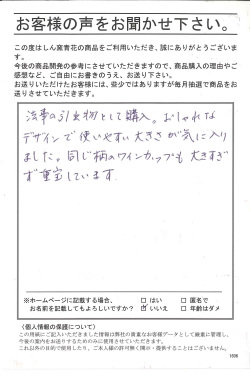 お客様の声をお聞かせ下さい。
この度はしん窯青花の商品をご利用いただき、誠にありがとうございます。
今後の商品開発の参考にさせていただきますので、商品購入の理由やご
感想など、ご自由にお書きのうえ、お送り下さい。
お送りいただけたお客様には、些少ではありますが毎月抽選で商品をお
送りさせていただきます。
法事の引出物として購入。おしゃれな
デザインで使いやすい大きさが気に入り
ました。同じ柄のワインカップも大きすぎ
ず重宝しています。
※ホームページに記載する場合、 □ はい □ 匿名で
お名前を記載してもよろしいですか? ☑ いいえ □ 年齢はダメ
〈個人情報の保護について〉
この用紙にご記入いただきました情報は弊社の貴重なお客様データとして厳重に管理し、
今後の案内をお送りするためのみに使用させていただきます。
これ以外の目的で使用したり、ご本人様の許可無く開示・提供することはございません。
1606